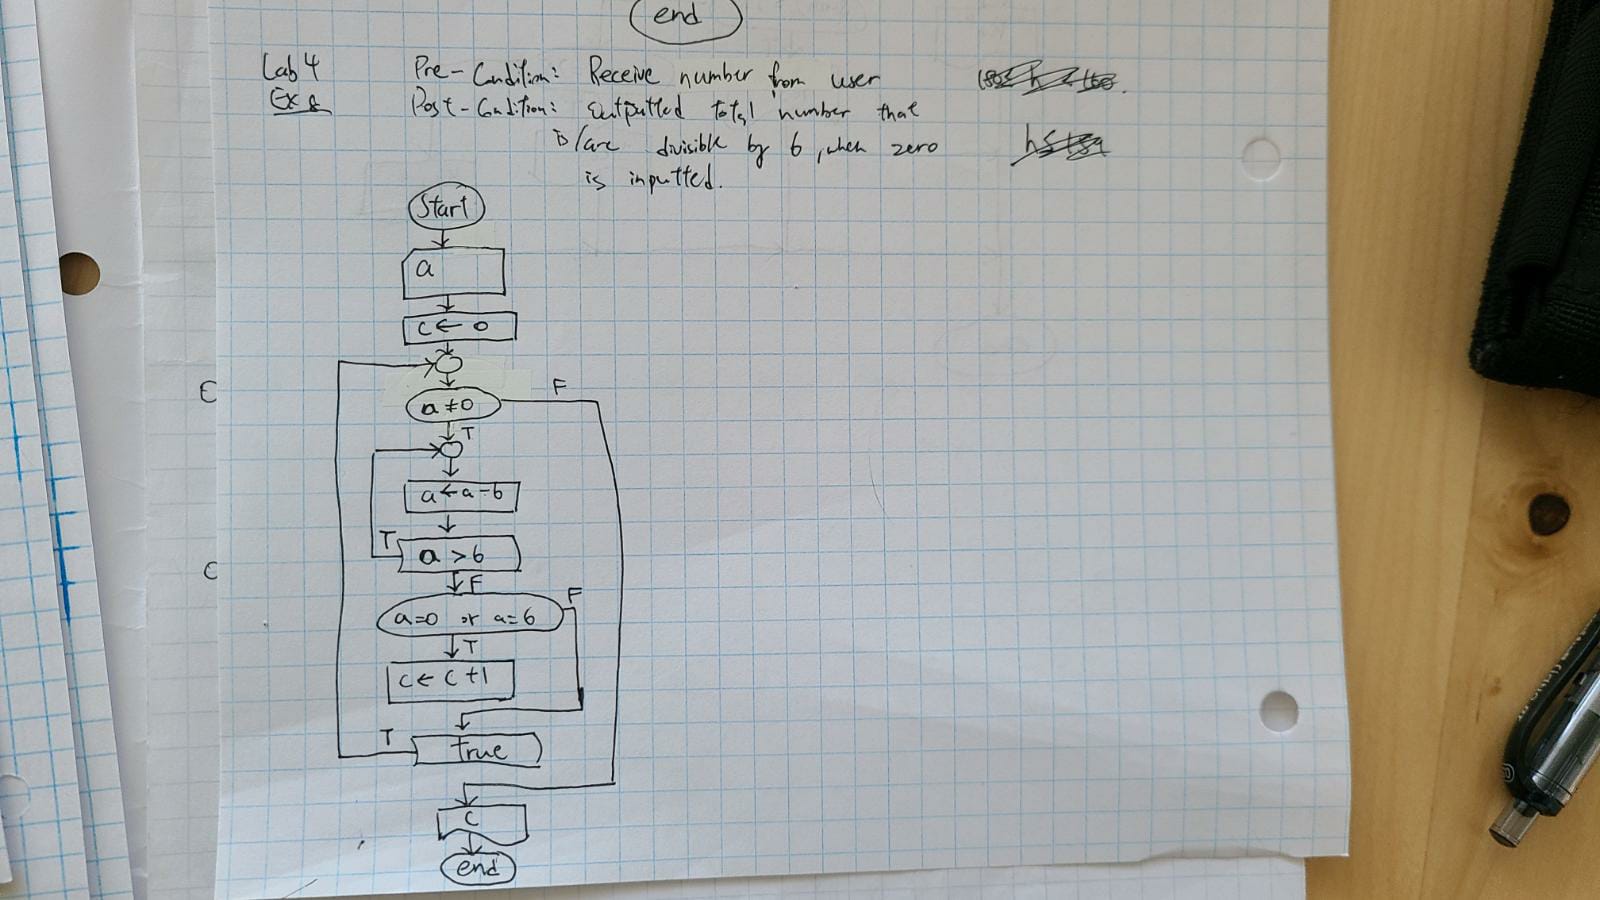 end
Lab 4
Pre-Condition: Receive number from user
Ex 8
Post-Condition: Outputted total number that
is/are divisible by 6, when zero
is inputted.
Start
a
c ← 0
a ≠ 0
F
T
a ← a - 6
T
a > 6
F
a=0 or a=6
F
T
c ← c + 1
T
true
c
end